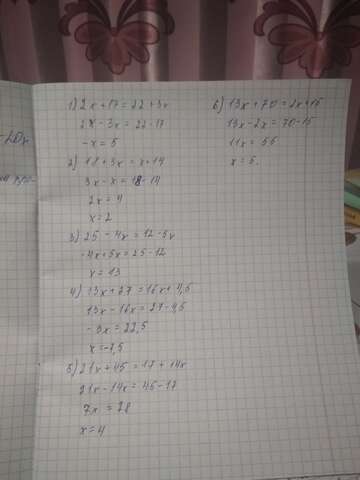 1) 2x+17=22+3x
2x-3x=22-17
-x=5
2) 18+3x=x+14
3x-x=18-14
2x=4
x=2
3) 25-4x=12-5x
-4x+5x=25-12
x=13
4) 13x+27=16x+4,5
13x-16x=27-4,5
-3x=22,5
x=-8,5
5) 21x+45=17+14x
21x-14x=45-17
7x=28
x=4
6) 13x+70=2x+15
13x-2x=70-15
11x=55
x=5.
-20x